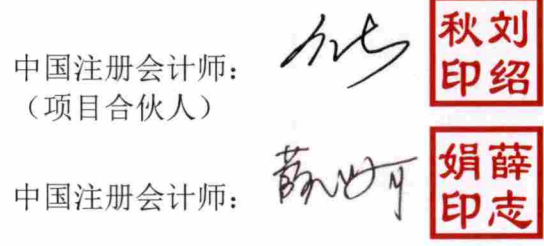 中国注册会计师：
（项目合伙人）
刘绍
秋印
中国注册会计师：
薛志
娟印